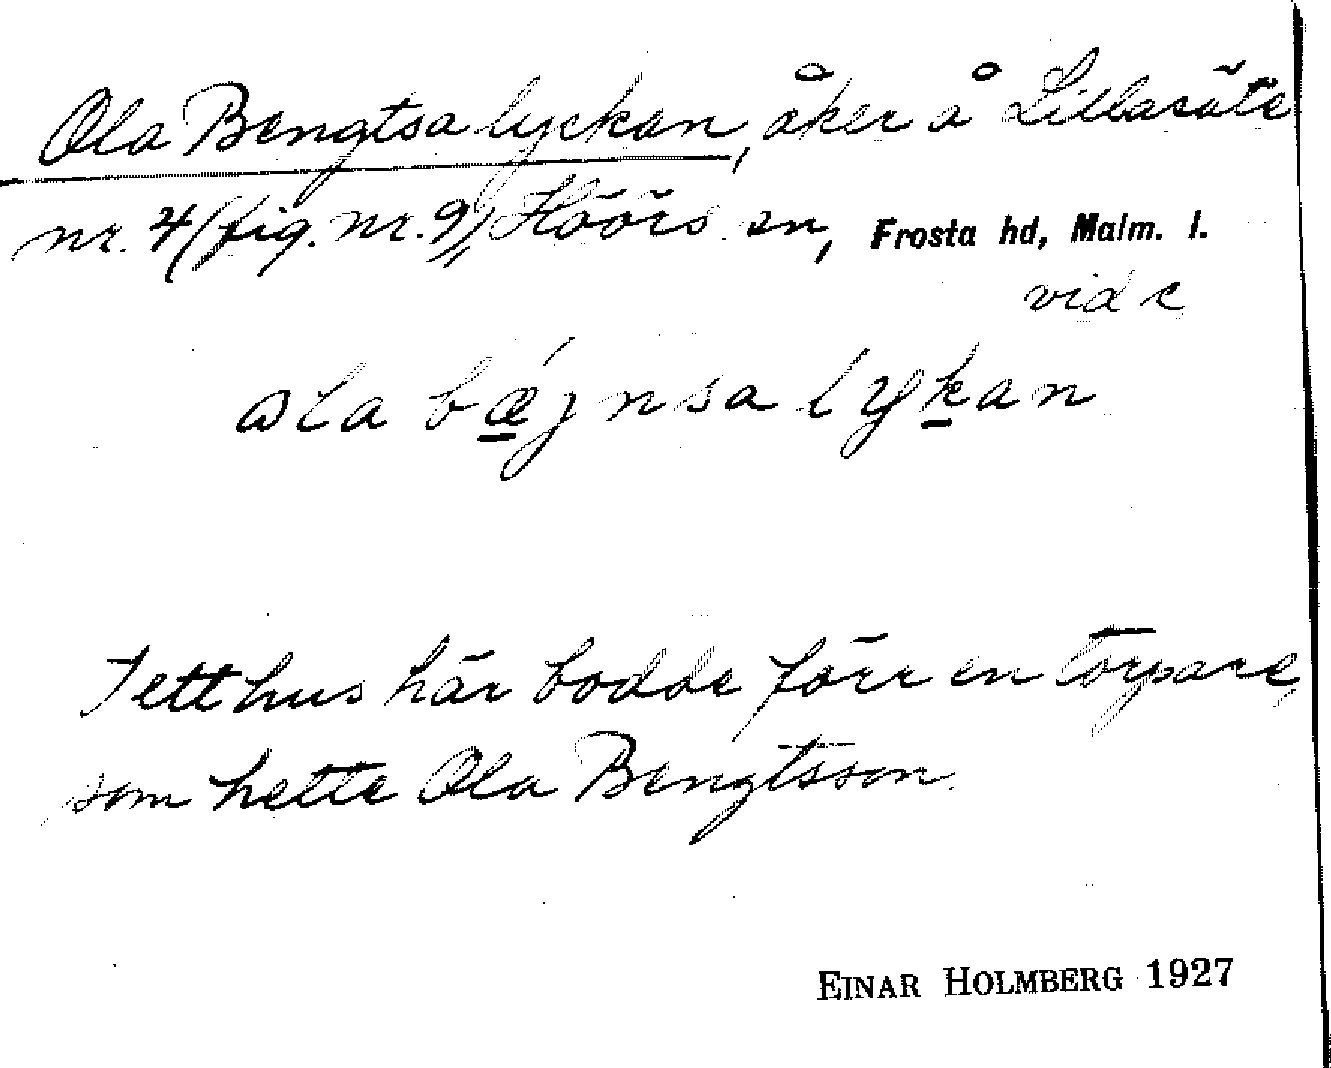 Ola Bengtsa lyckan, åker å Lillasäte
nr. 4 (fig. nr. 9), Höörs sn, Frosta hd, Malm. l.
vid c
ɷla bǽjnsa lykan
I ett hus här bodde förr en torpare,
som hette Ola Bengtsson.
EINAR HOLMBERG 1927